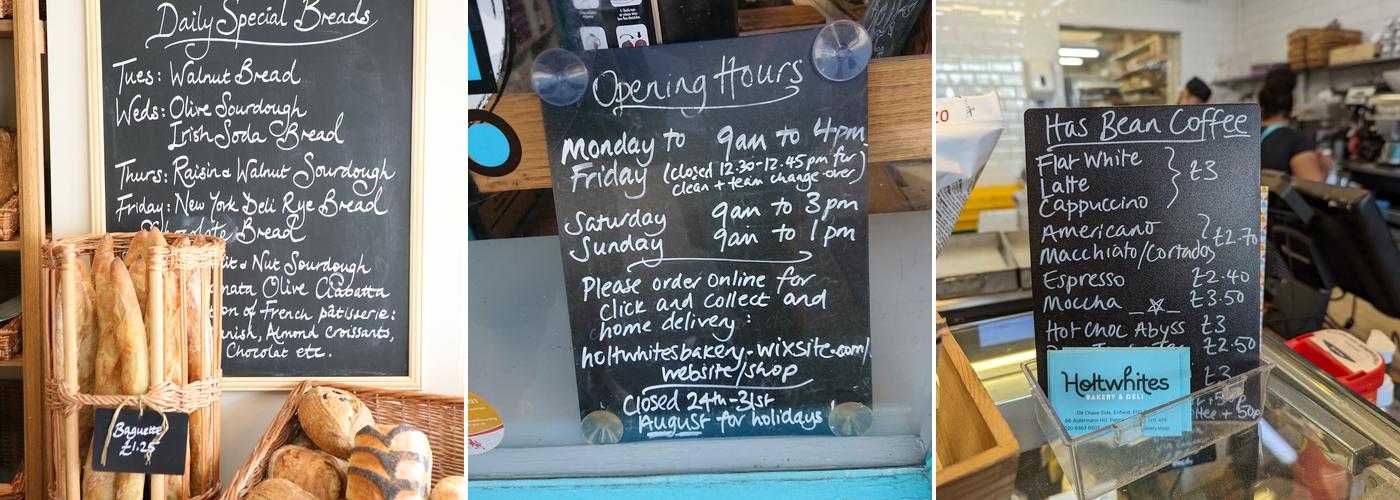 Daily Special Breads
Tues: Walnut Bread
Weds: Olive Sourdough
Irish Soda Bread
Thurs: Raisin & Walnut Sourdough
Friday: New York Deli Rye Bread
Bread
& Nut Sourdough
Olive Ciabatta
of French patisserie:
Almond Croissants,
Chocolat etc.
Baguette
£1.25
Opening Hours
Monday to 9am to 4pm
Friday (closed 12.30-12.45pm for
clean + team change over)
Saturday 9am to 3pm
Sunday 9am to 1pm
Please order online for
click and collect and
home delivery:
holtwhitesbakery.wixsite.com/
website/shop
Closed 24th-31st
August for holidays!
Has Bean Coffee
Flat White
Latte £3
Cappuccino
Americano
Macchiato/Cortado £2.70
Espresso £2.40
Moccha £3.50
Hot Choc Abyss £3
£2.50
£3
Holtwhites
BAKERY & DELI